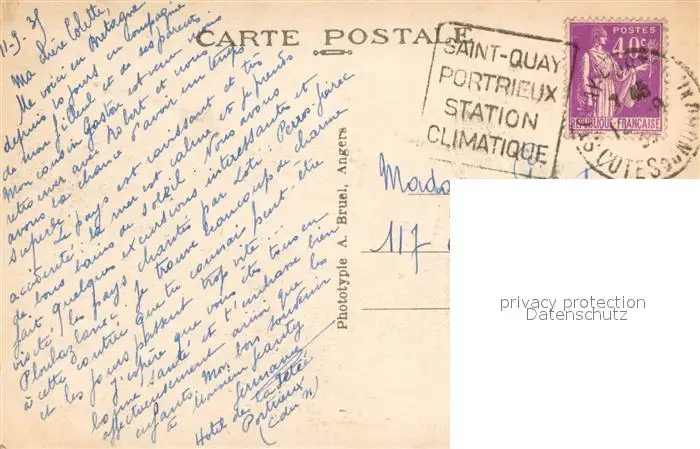 11-9-37
Ma chère Colette,
Me voici en Bretagne
depuis 10 jours en compagnie
de mon filleul et de ses parents.
Mon cousin Gaston est venu nous
retrouver avec Robert et nous
avons la chance d'avoir un temps
superbe. Le pays est ravissant et très
accidenté, la mer est calme et je prends
de bons bains de soleil. Nous avons
fait quelques excursions intéressantes et
visité les pays chantés par Loti. Perros-Guirec
Ploubazlanec. Je trouve beaucoup de charme
à cette contrée que tu connais peut-être
et les jours passent trop vite...
J'espère que vous êtes tous en
bonne santé et t'embrasse bien
affectueusement ainsi que les
enfants. Mon bon souvenir
à Monsieur
Germaine
Hotel de la Jetée
Portrieux
(C du N)
CARTE POSTALE
Phototypie A. Bruel, Angers
SAINT-QUAY
PORTRIEUX
STATION
CLIMATIQUE
POSTES
40c
REPUBLIQUE FRANÇAISE
COTES DU NORD
117
privacy protection
Datenschutz